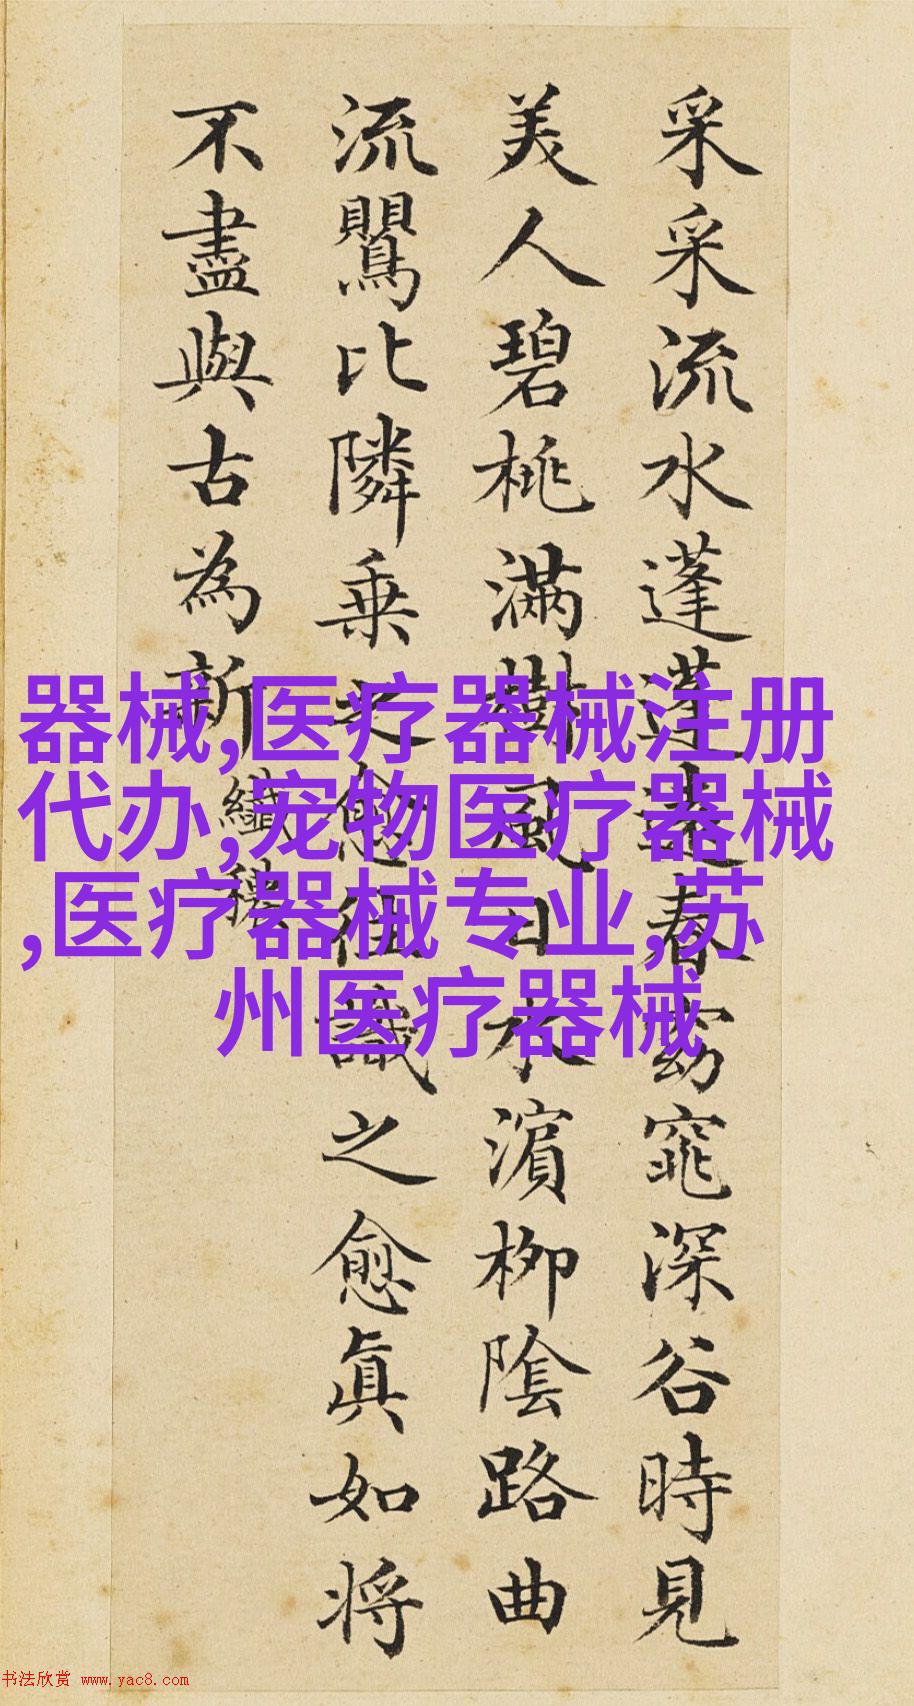 采采流水蓬蓬遠春窈窕深谷時見
美人碧桃滿樹風日水濱柳陰路曲
流鸎比隣乗之愈往識之愈眞如将
不盡與古為新
纖穠
器械,医疗器械注册
代办,宠物医疗器械
,医疗器械专业,苏
州医疗器械
书法欣赏 www.yac8.com